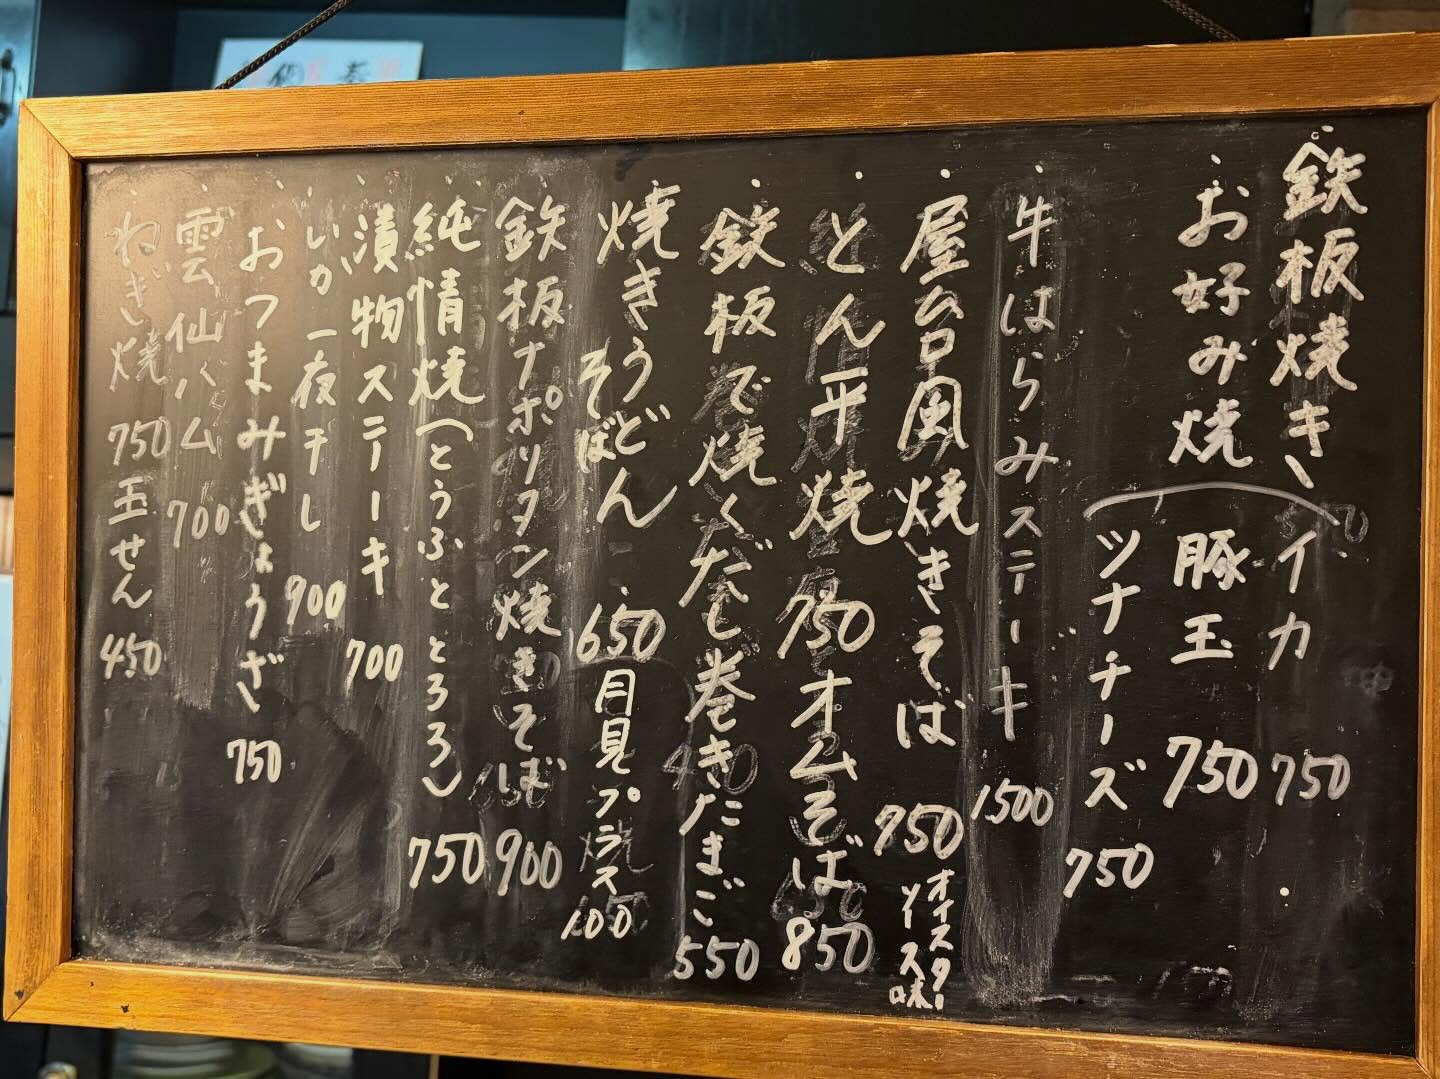 鉄板焼き イカ 750
お好み焼 豚玉 750
ツナチーズ 750
牛はらみステーキ 1500
屋台風焼きそば 750 オイスターソース味
とん平焼 750 オムそば 850
鉄板で焼くだし巻きたまご 550
焼きうどん そば 650 月見プラス 100
鉄板ナポリタン焼きそば 900
純情焼(とうふととろろ) 750
漬物ステーキ 700
いか一夜干し 900
おつまみぎょうざ 750
雲仙ハム 700
ねぎ焼 750 玉せん 450